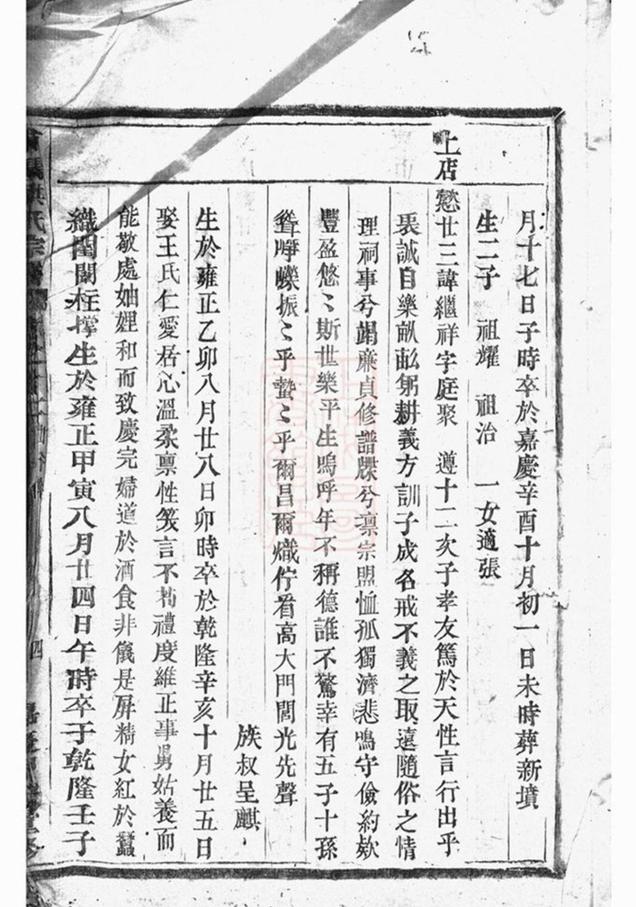 月十七日子時卒於嘉慶辛酉十月初一日未時葬新墳
生二子 祖耀 祖治 一女適張
上店 愸廿三諱繼祥字庭聚 遵十二次子孝友篤於天性言行出乎
裏誠自樂畝畆躬耕義方訓子成名戒不義之取遠隨俗之情
理祠事兮竭廉貞修譜牒兮凛宗盟恤孤獨濟悲鳴守儉約欬
豐盈悠〻斯世樂平生嗚呼年不稱德誰不驚幸有五子十孫
聳崢嶸振〻乎蟄〻乎爾昌爾熾佇看高大門閭光先聲
族叔呈麒
生於雍正乙卯八月廿八日卯時卒於乾隆辛亥十月廿五日
娶王氏仁愛居心溫柔禀性笑言不茍禮度維正事舅姑養而
能敬處妯娌和而致慶完婦道於酒食非儀是屏精女紅於蠶
織閨閫柱撑生於雍正甲寅八月廿四日午時卒于乾隆壬子
洪氏宗譜
四